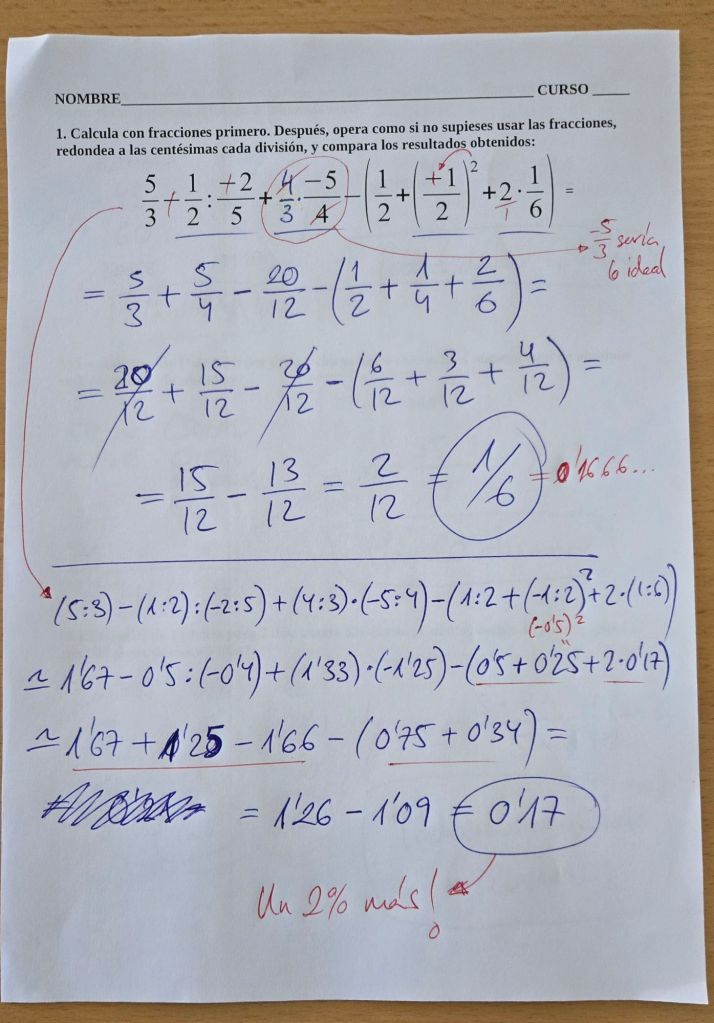 NOMBRE____________________ CURSO _____
1. Calcula con fracciones primero. Después, opera como si no supieses usar las fracciones,
redondea a las centésimas cada división, y compara los resultados obtenidos:
5/3 - 1/2 : -2/5 + 4/3 · -5/4 - (1/2 + (-1/2)² + 2 · 1/6) =
-5/3 sería
ideal
= 5/3 + 5/4 - 20/12 - (1/2 + 1/4 + 2/6) =
= 20/12 + 15/12 - 20/12 - (6/12 + 3/12 + 4/12) =
= 15/12 - 13/12 = 2/12 = 1/6 = 0'1666...
(5:3) - (1:2) : (-2:5) + (4:3) · (-5:4) - (1:2 + (-1:2)² + 2 · (1:6))
(-0'5)²
≃ 1'67 - 0'5 : (-0'4) + (1'33) · (-1'25) - (0'5 + 0'25 + 2 · 0'17)
≃ 1'67 + 1'25 - 1'66 - (0'75 + 0'34) =
= 1'26 - 1'09 = 0'17
Un 2% más!